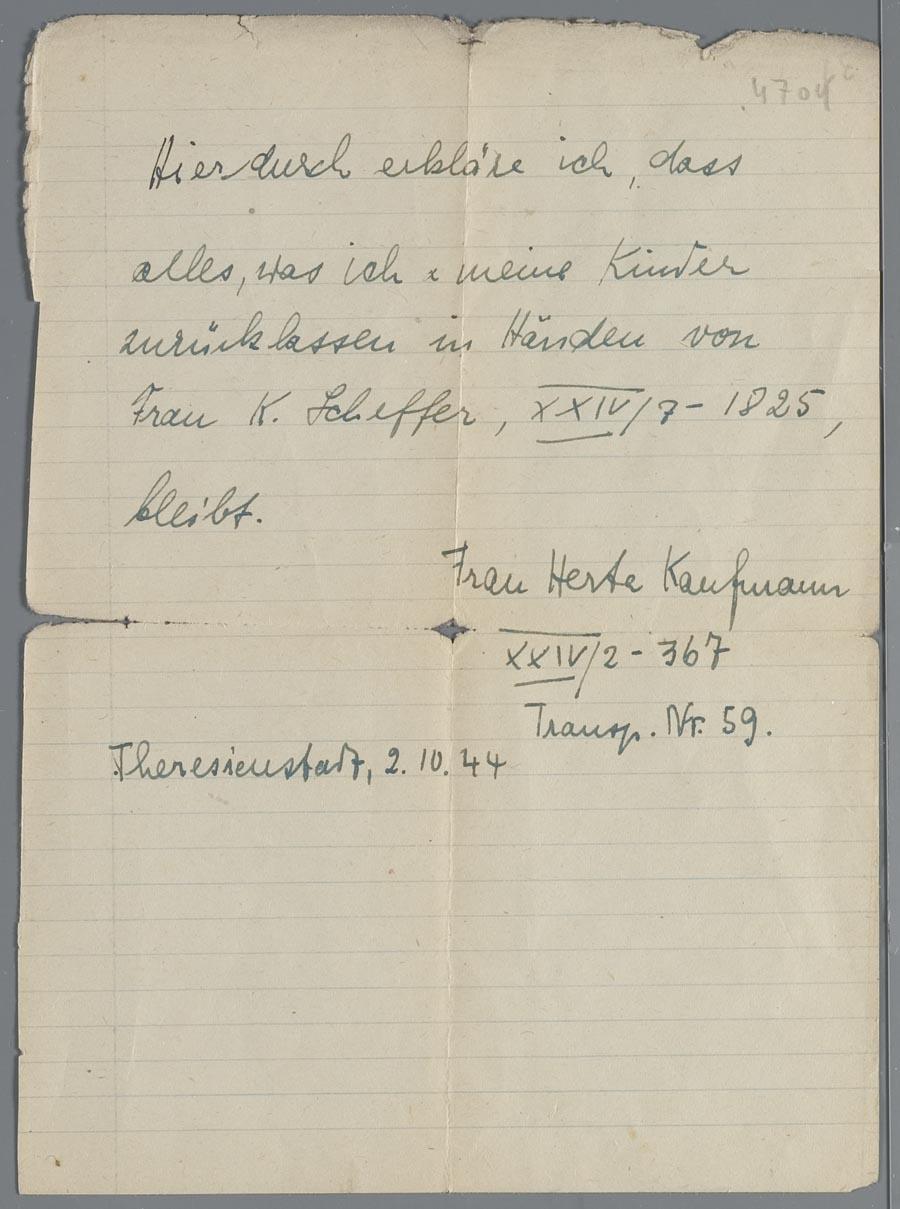 4704
Hierdurch erkläre ich, dass
alles, was ich & meine Kinder
zurücklassen in Händen von
Frau K. Scheffer, XXIV/7 - 1825,
bleibt.
Frau Herta Kaufmann
XXIV/2 - 367
Transp. Nr. 59.
Theresienstadt, 2. 10. 44